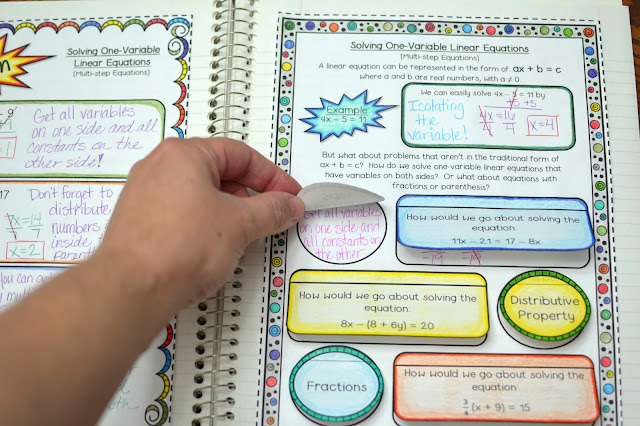 Solving One-Variable
Linear Equations
(Multi-step Equations)
Get all variables
on one side and all
constants on the
other side!
17
Don't forget to
distribute
numbers
inside
x=14
7 7
x=2
You can
Solving One-Variable Linear Equations
(Multi-step Equations)
A linear equation can be represented in the form of ax + b = c
where a and b are real numbers, with a ≠ 0.
Example:
4x - 5 = 11
We can easily solve 4x - 5 = 11 by
Isolating
the
variable!
+5 +5
4x=16
4 4
x=4
But what about problems that aren't in the traditional form of
ax + b = c? How do we solve one-variable linear equations that
have variables on both sides? Or what about equations with
fractions or parenthesis?
Get all variables
on one side and
all constants on
the other
How would we go about solving the
equation:
11x - 21 = 17 - 8x
19 19
How would we go about solving the
equation:
8x - (8 + 6y) = 20
Distributive
Property
Fractions
How would we go about solving the
equation:
3/4 (x + 9) = 15